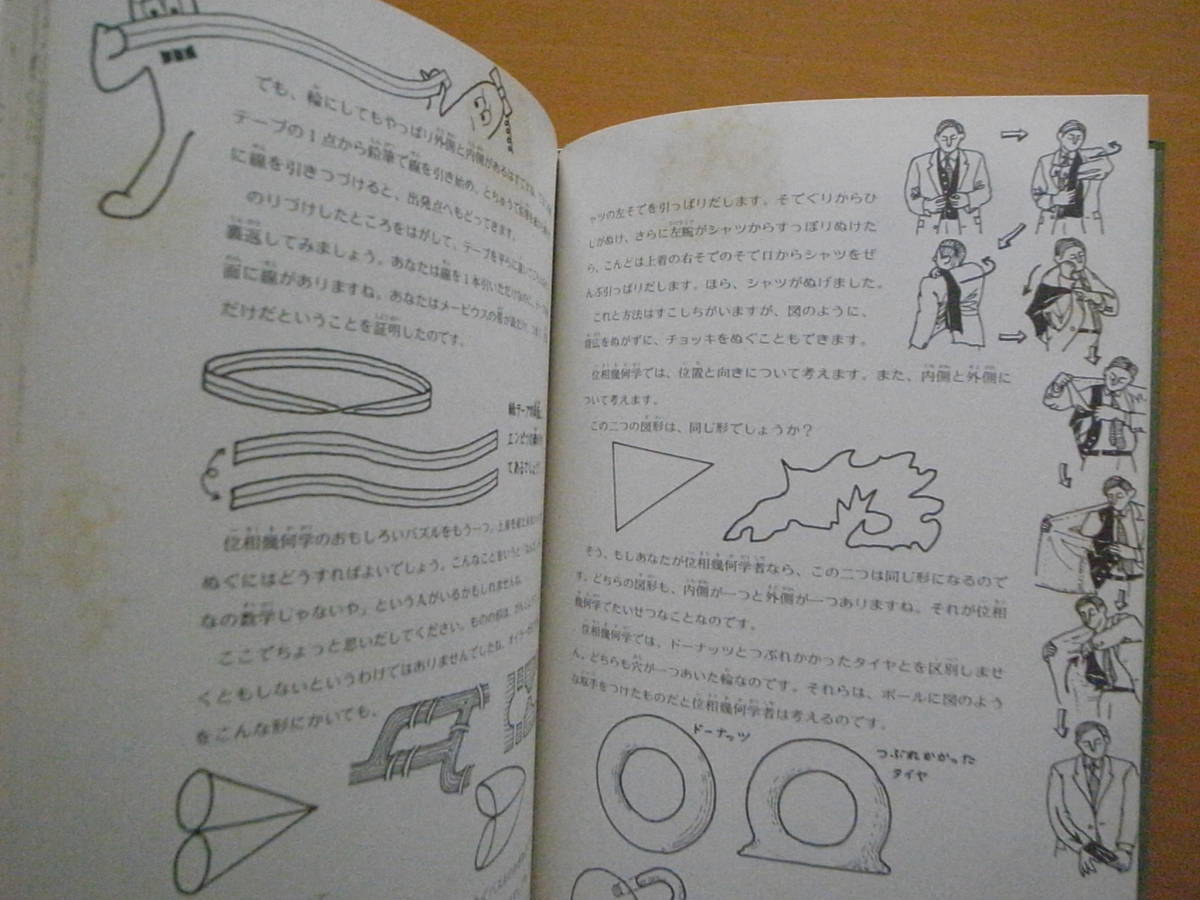 でも、輪にしてもやっぱり外側と内側があるはずですね。
テープの1点から鉛筆で線を引き始め、とちゅうで鉛筆を
に線を引きつづけると、出発点へもどってきます。
のりづけしたところをはがして、テープを平らに
裏返してみましょう。あなたは線を1本引いただけなのに、
面に線がありますね。あなたはメービウスの帯が
だけだということを証明したのです。
紙テープの両面に
エンピツの線が
てあるでしょう
位相幾何学のおもしろいパズルをもう一つ。上着を
ぬぐにはどうすればよいでしょう。こんなことをいうと
なの数学じゃないや」という人がいるかもしれませんね。
ここでちょっと思いだしてください。ものの形は、
くともしないというわけではありませんでしたね。オイラーが
をこんな形にかいても、
ャツの左そでを引っぱりだします。そでぐりからひ
じがぬけ、さらに左腕がシャツからすっぽりぬけた
ら、こんどは上着の右そでのそで口からシャツをぜ
んぶ引っぱりだします。ほら、シャツがぬげました。
これと方法はすこしちがいますが、図のように、
背広をぬがずに、チョッキをぬぐこともできます。
位相幾何学では、位置と向きについて考えます。また、内側と外側に
ついて考えます。
この二つの図形は、同じ形でしょうか？
そう、もしあなたが位相幾何学者なら、この二つは同じ形になるので
す。どちらの図形も、内側が一つと外側が一つありますね。それが位相
幾何学でたいせつなことなのです。
位相幾何学では、ドーナッツとつぶれかかったタイヤとを区別しませ
ん。どちらも穴が一つあいた輪なのです。それらは、ボールに図のよう
な取手をつけたものだと位相幾何学者は考えるのです。
ドーナッツ
つぶれかかった
タイヤ